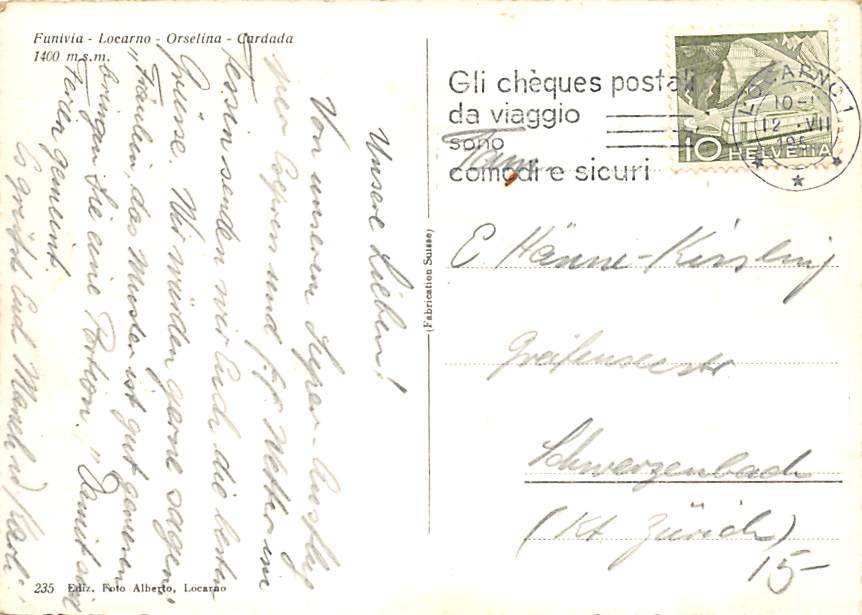 Funivia - Locarno - Orselina - Cardada
1400 m.s.m.
Unsere Lieben!
Von unserem
und f. f. Wetter im
Tessin senden wir Euch die besten
Grüsse. Wir würden gerne sagen:
"Fräulein, das Muster ist gut gewesen
bringen Sie eine Portion." Damit sind
Ferien gemeint.
Es grüsst Euch
235 Ediz. Foto Alberto, Locarno
(Fabrication Suisse)
Gli chèques postali
da viaggio
sono
comodi e sicuri
LOCARNO 1
10-
12. VII
195
10 HELVETIA
Fam.
E Hänne-Kissling
Greifenseestr
Schwerzenbach
(Kt. Zürich)
15-